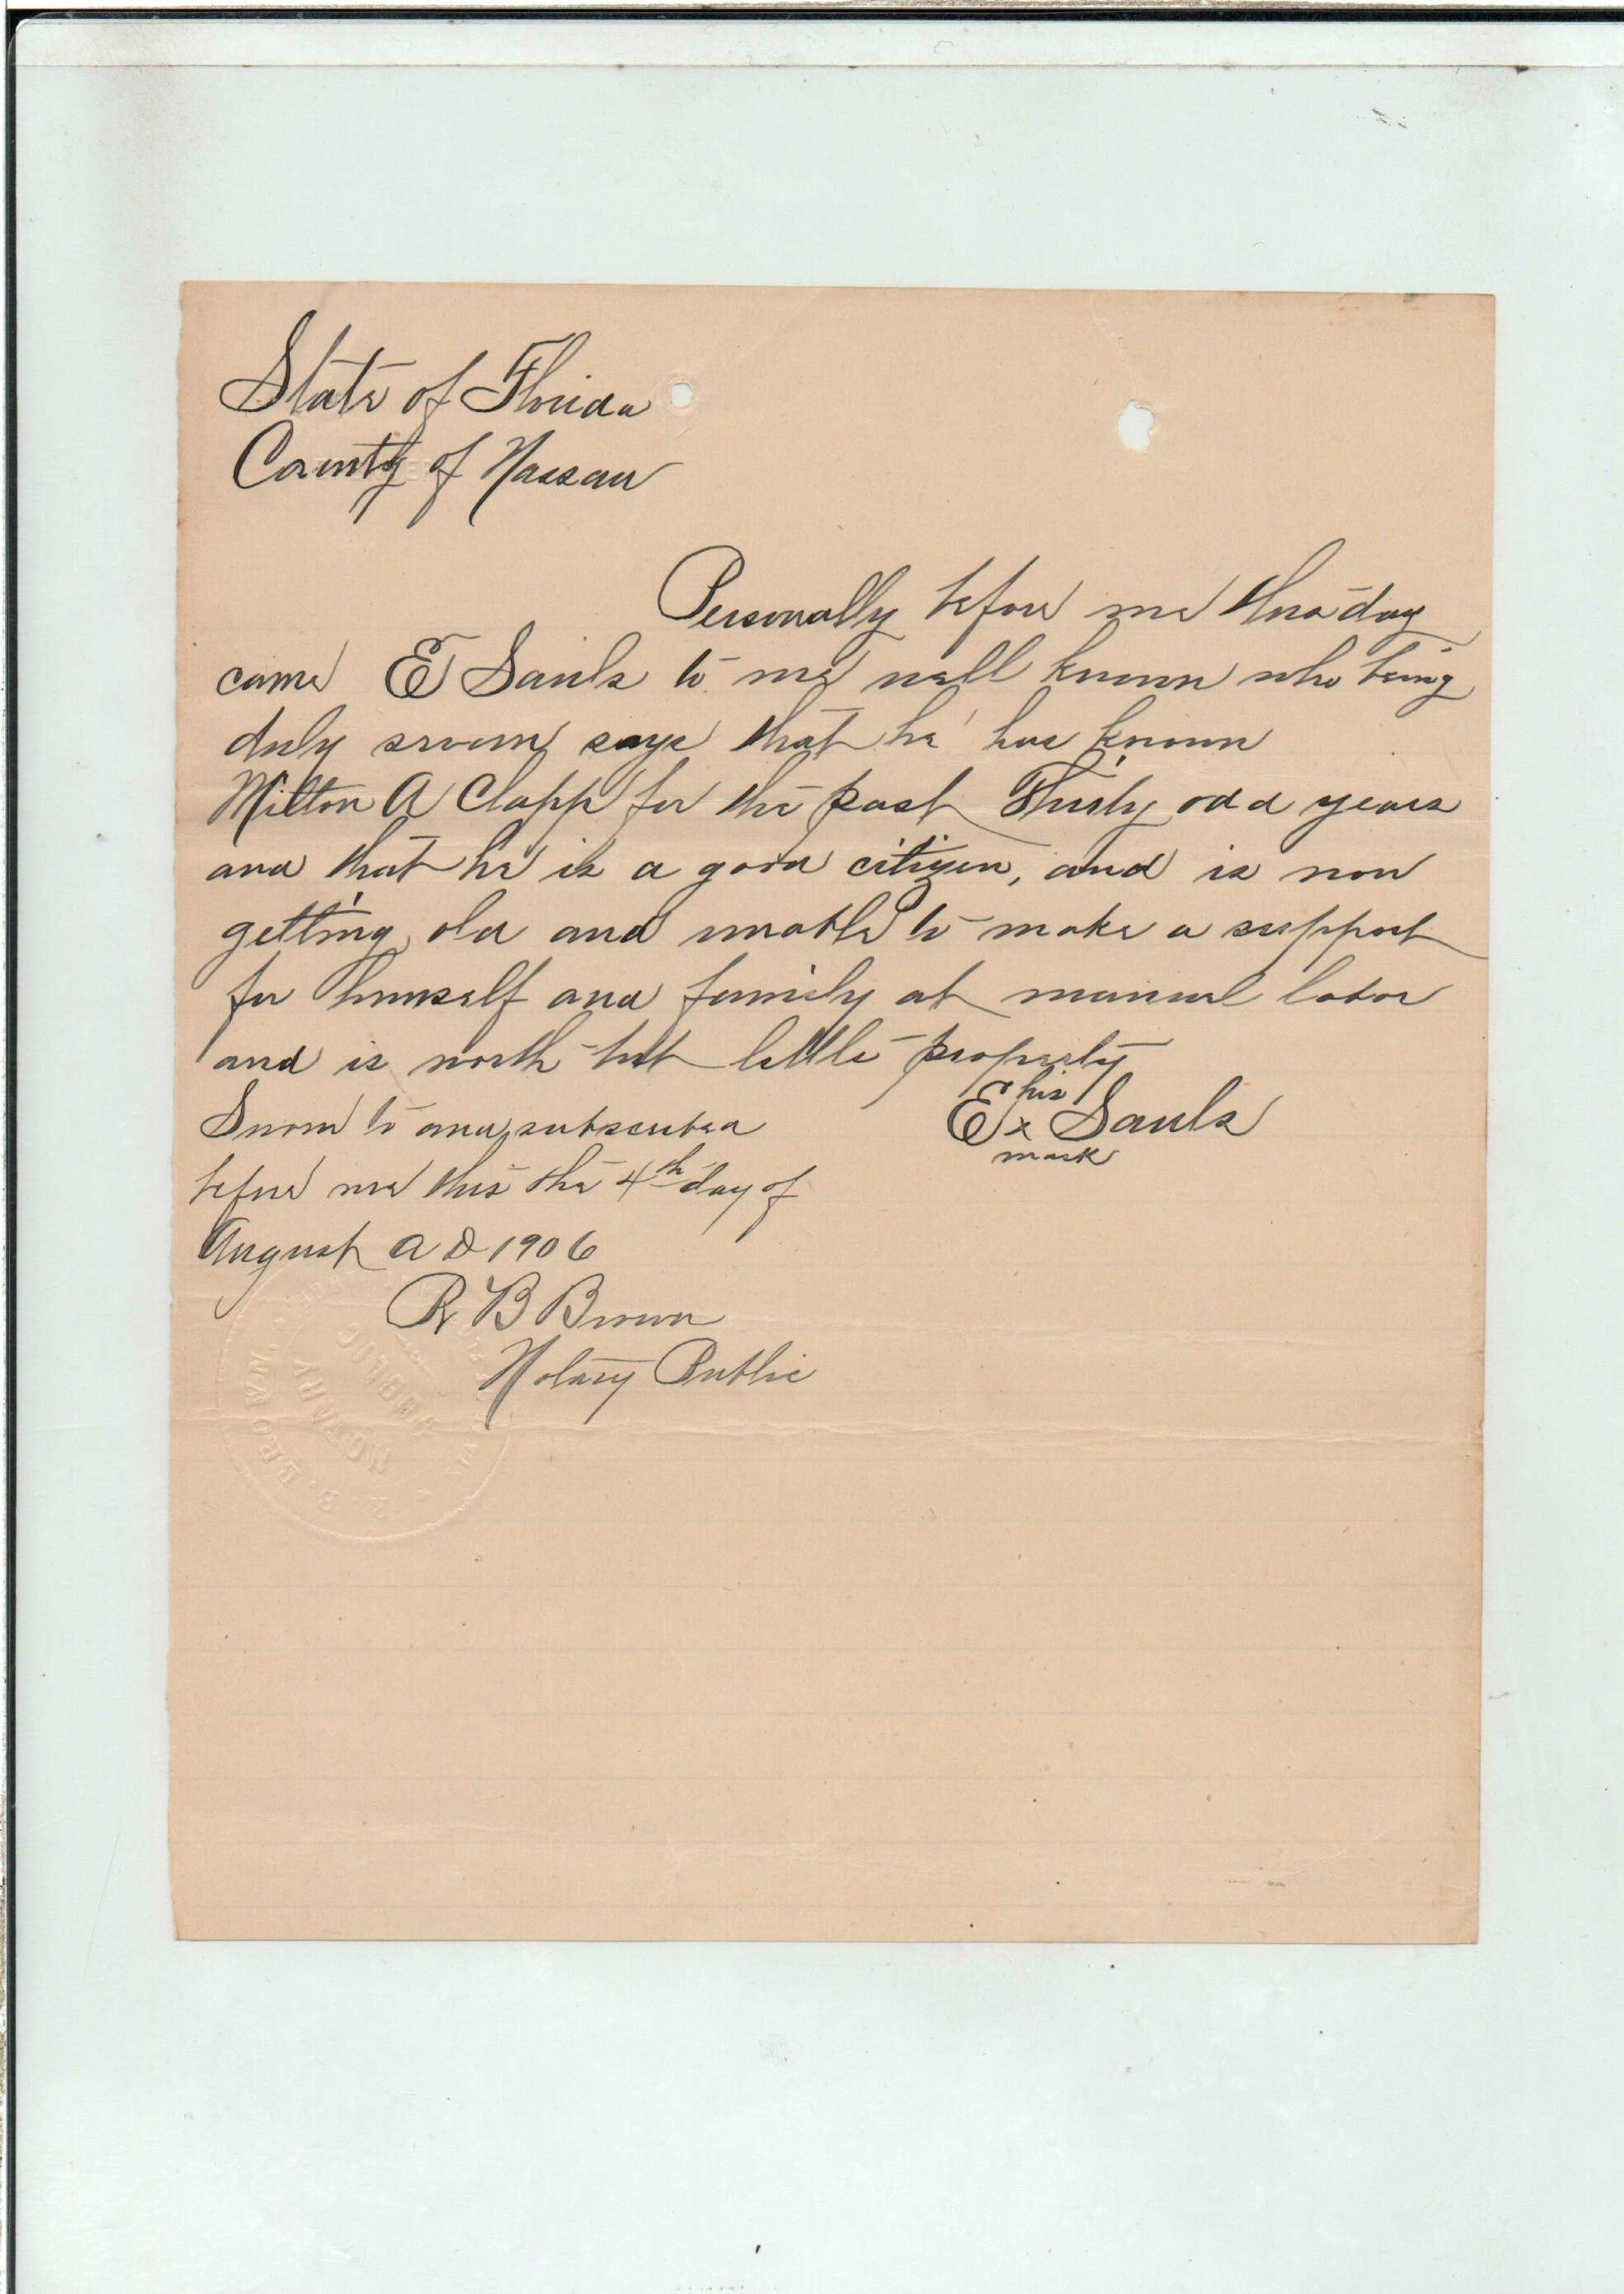 State of Florida
County of Nassau
Personally before me this day
came E Sauls to me well known who being
duly sworn says that he has known
Milton A Clapp for the past Thirty odd years
and that he is a good citizen, and is now
getting old and unable to make a support
for himself and family at manual labor
and is worth but little property
his
E x Sauls
mark
Sworn to and subscribed
before me this the 4th day of
August A D 1906
R B Brown
Notary Public
R. B. BROWN
NOTARY
PUBLIC